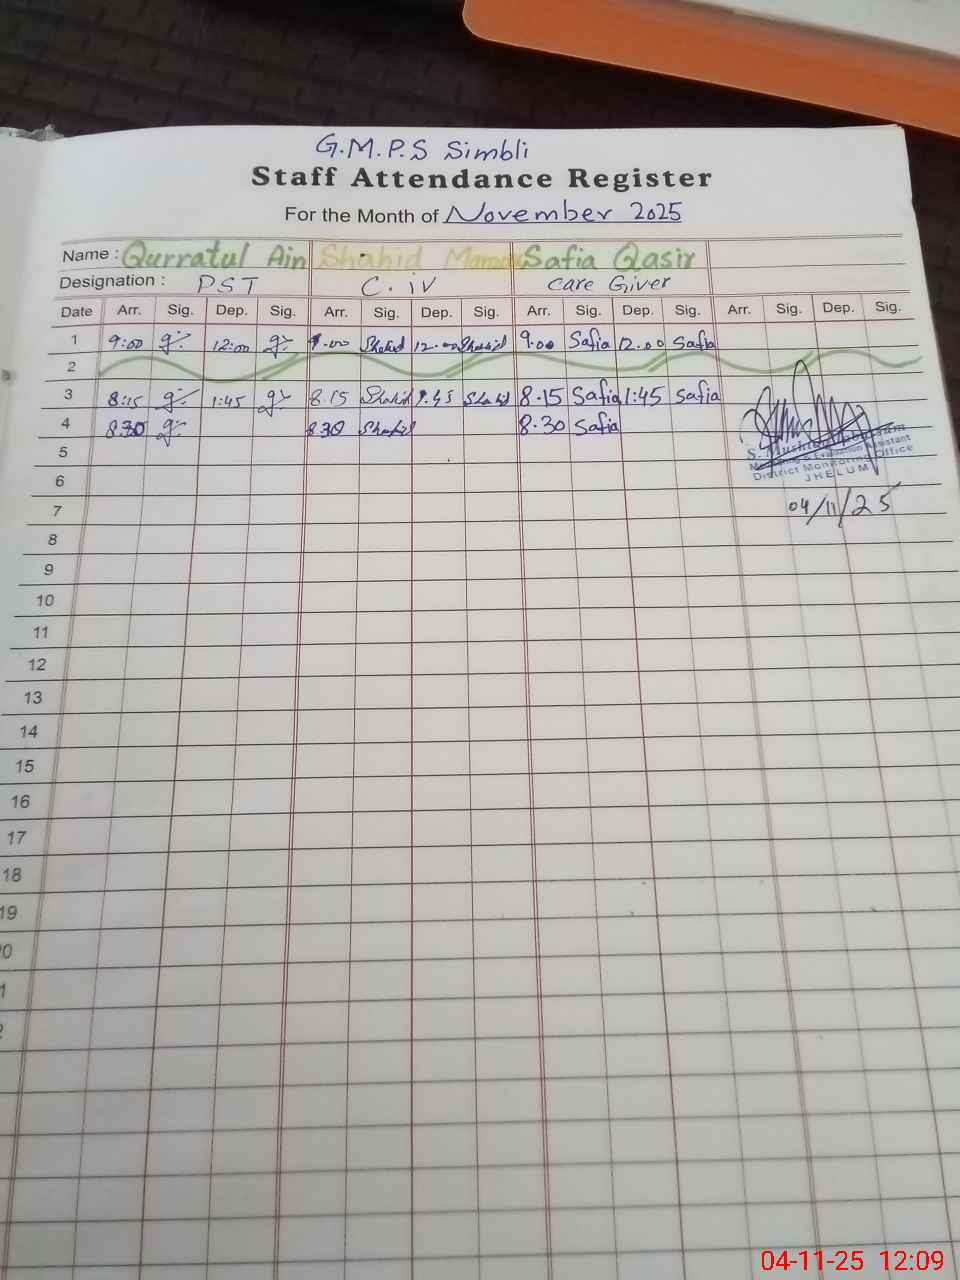 G.M.P.S Simbli
Staff Attendance Register
For the Month of November 2025
Name : Qurratul Ain Shahid Safia Qasir
Designation : PST C. iv Care Giver
Date Arr. Sig. Dep. Sig. Arr. Sig. Dep. Sig. Arr. Sig. Dep. Sig. Arr. Sig. Dep. Sig.
1 9:00 12:00 9.00 Shahid 12.00 Shahid 9.00 Safia 12.00 Safia
2
3 8:15 1:45 8.15 Shahid 1.45 Shahid 8.15 Safia 1:45 Safia
4 8:30 8.30 Shahid 8.30 Safia
5
6
7
8
9
10
11
12
13
14
15
16
17
18
19
District Monitoring Office
JHELUM
04/11/25
04-11-25 12:09